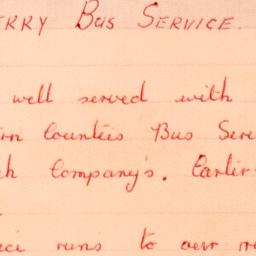 ERRY BUS SERVICE.
well served with
rn Counties Bus Ser
h Company's. Earli
runs to our